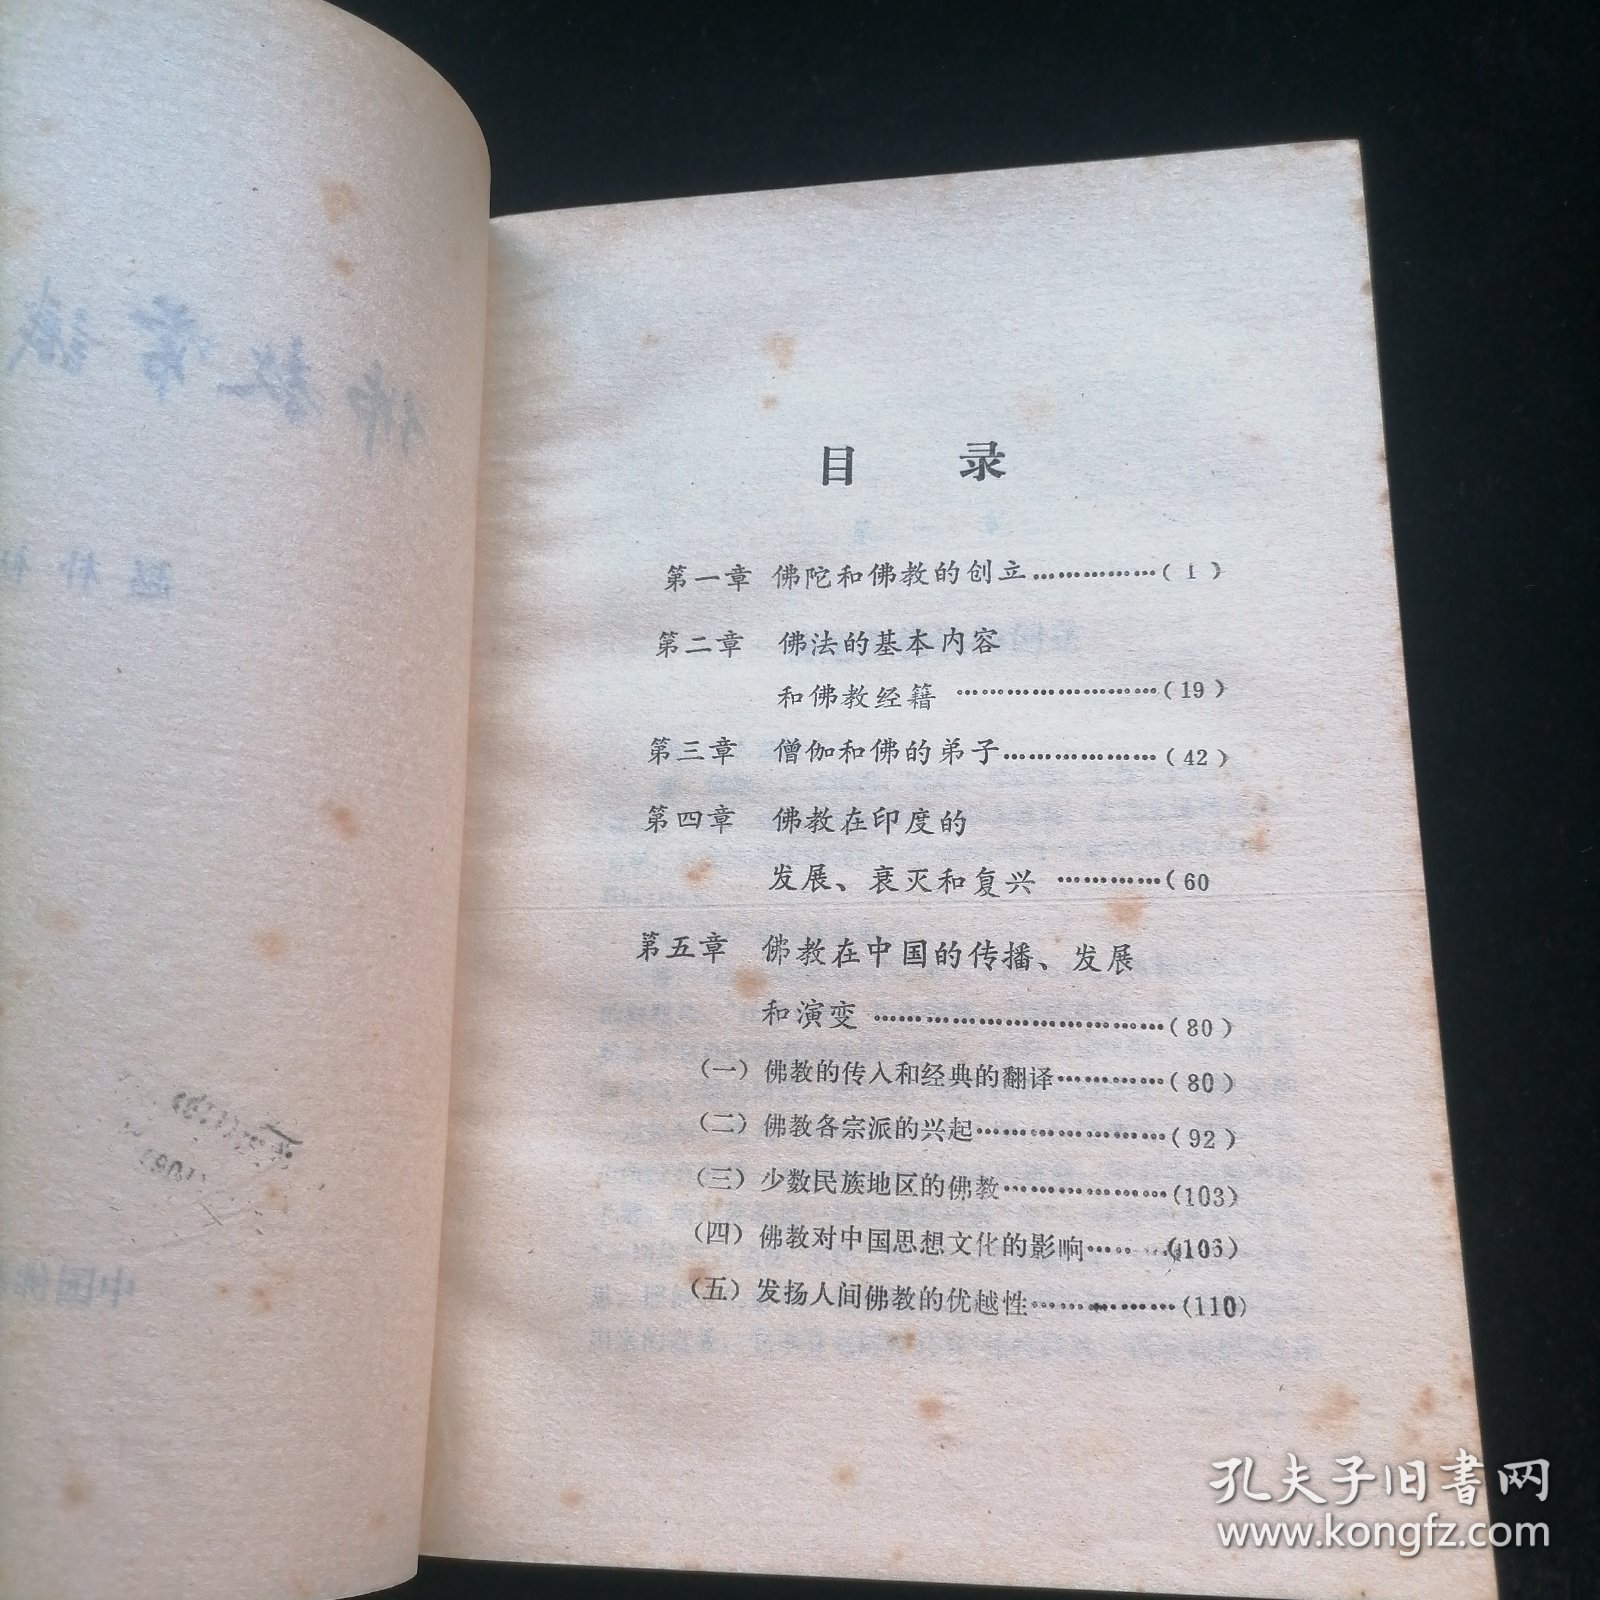 目 录
第一章 佛陀和佛教的创立……………(1)
第二章 佛法的基本内容
和佛教经籍 ……………………(19)
第三章 僧伽和佛的弟子………………(42)
第四章 佛教在印度的
发展、衰灭和复兴 …………(60
第五章 佛教在中国的传播、发展
和演变 ……………………………(80)
(一)佛教的传入和经典的翻译…………(80)
(二)佛教各宗派的兴起…………………(92)
(三)少数民族地区的佛教………………(103)
(四)佛教对中国思想文化的影响………(106)
(五)发扬人间佛教的优越性……………(110)
孔夫子旧书网
www.kongfz.com